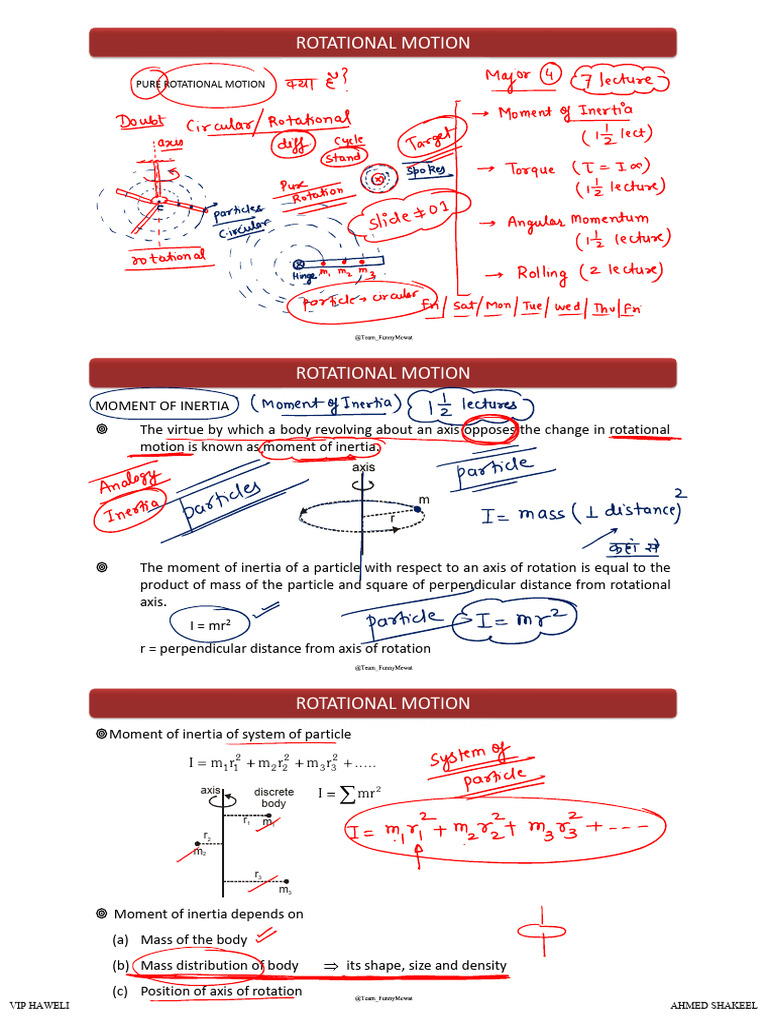 ROTATIONAL MOTION
PURE ROTATIONAL MOTION क्या है?
Major 4 7 lecture
Doubt Circular/Rotational
diff
Cycle stand
Target
spokes
axis
particles circular
rotational
Pure Rotation
slide ≠ 01
Hinge m1 m2 m3
particle → circular
→ Moment of Inertia
(1 1/2 lect)
→ Torque (τ = I∝)
(1 1/2 lecture)
→ Angular Momentum
(1 1/2 lecture)
→ Rolling (2 lecture)
Fri/Sat/Mon/Tue/wed/Thu/Fri
@Team_FunnyMewat
ROTATIONAL MOTION
MOMENT OF INERTIA (Moment of Inertia) 1 1/2 lectures
The virtue by which a body revolving about an axis opposes the change in rotational
motion is known as moment of inertia.
Analogy
Inertia
particles
axis
m
r
particle
I = mass (⊥ distance)²
कहां से
The moment of inertia of a particle with respect to an axis of rotation is equal to the
product of mass of the particle and square of perpendicular distance from rotational
axis.
I = mr²
particle → I = mr²
r = perpendicular distance from axis of rotation
@Team_FunnyMewat
ROTATIONAL MOTION
Moment of inertia of system of particle
I = m₁r₁² + m₂r₂² + m₃r₃² + .....
I = ∑ mr²
axis
discrete
body
r₁ m₁
r₂
m₂
r₃
m₃
system of
particle
I = m₁r₁² + m₂r₂² + m₃r₃² + ---
Moment of inertia depends on
(a) Mass of the body
(b) Mass distribution of body ⇒ its shape, size and density
(c) Position of axis of rotation
@Team_FunnyMewat
VIP HAWELI
AHMED SHAKEEL